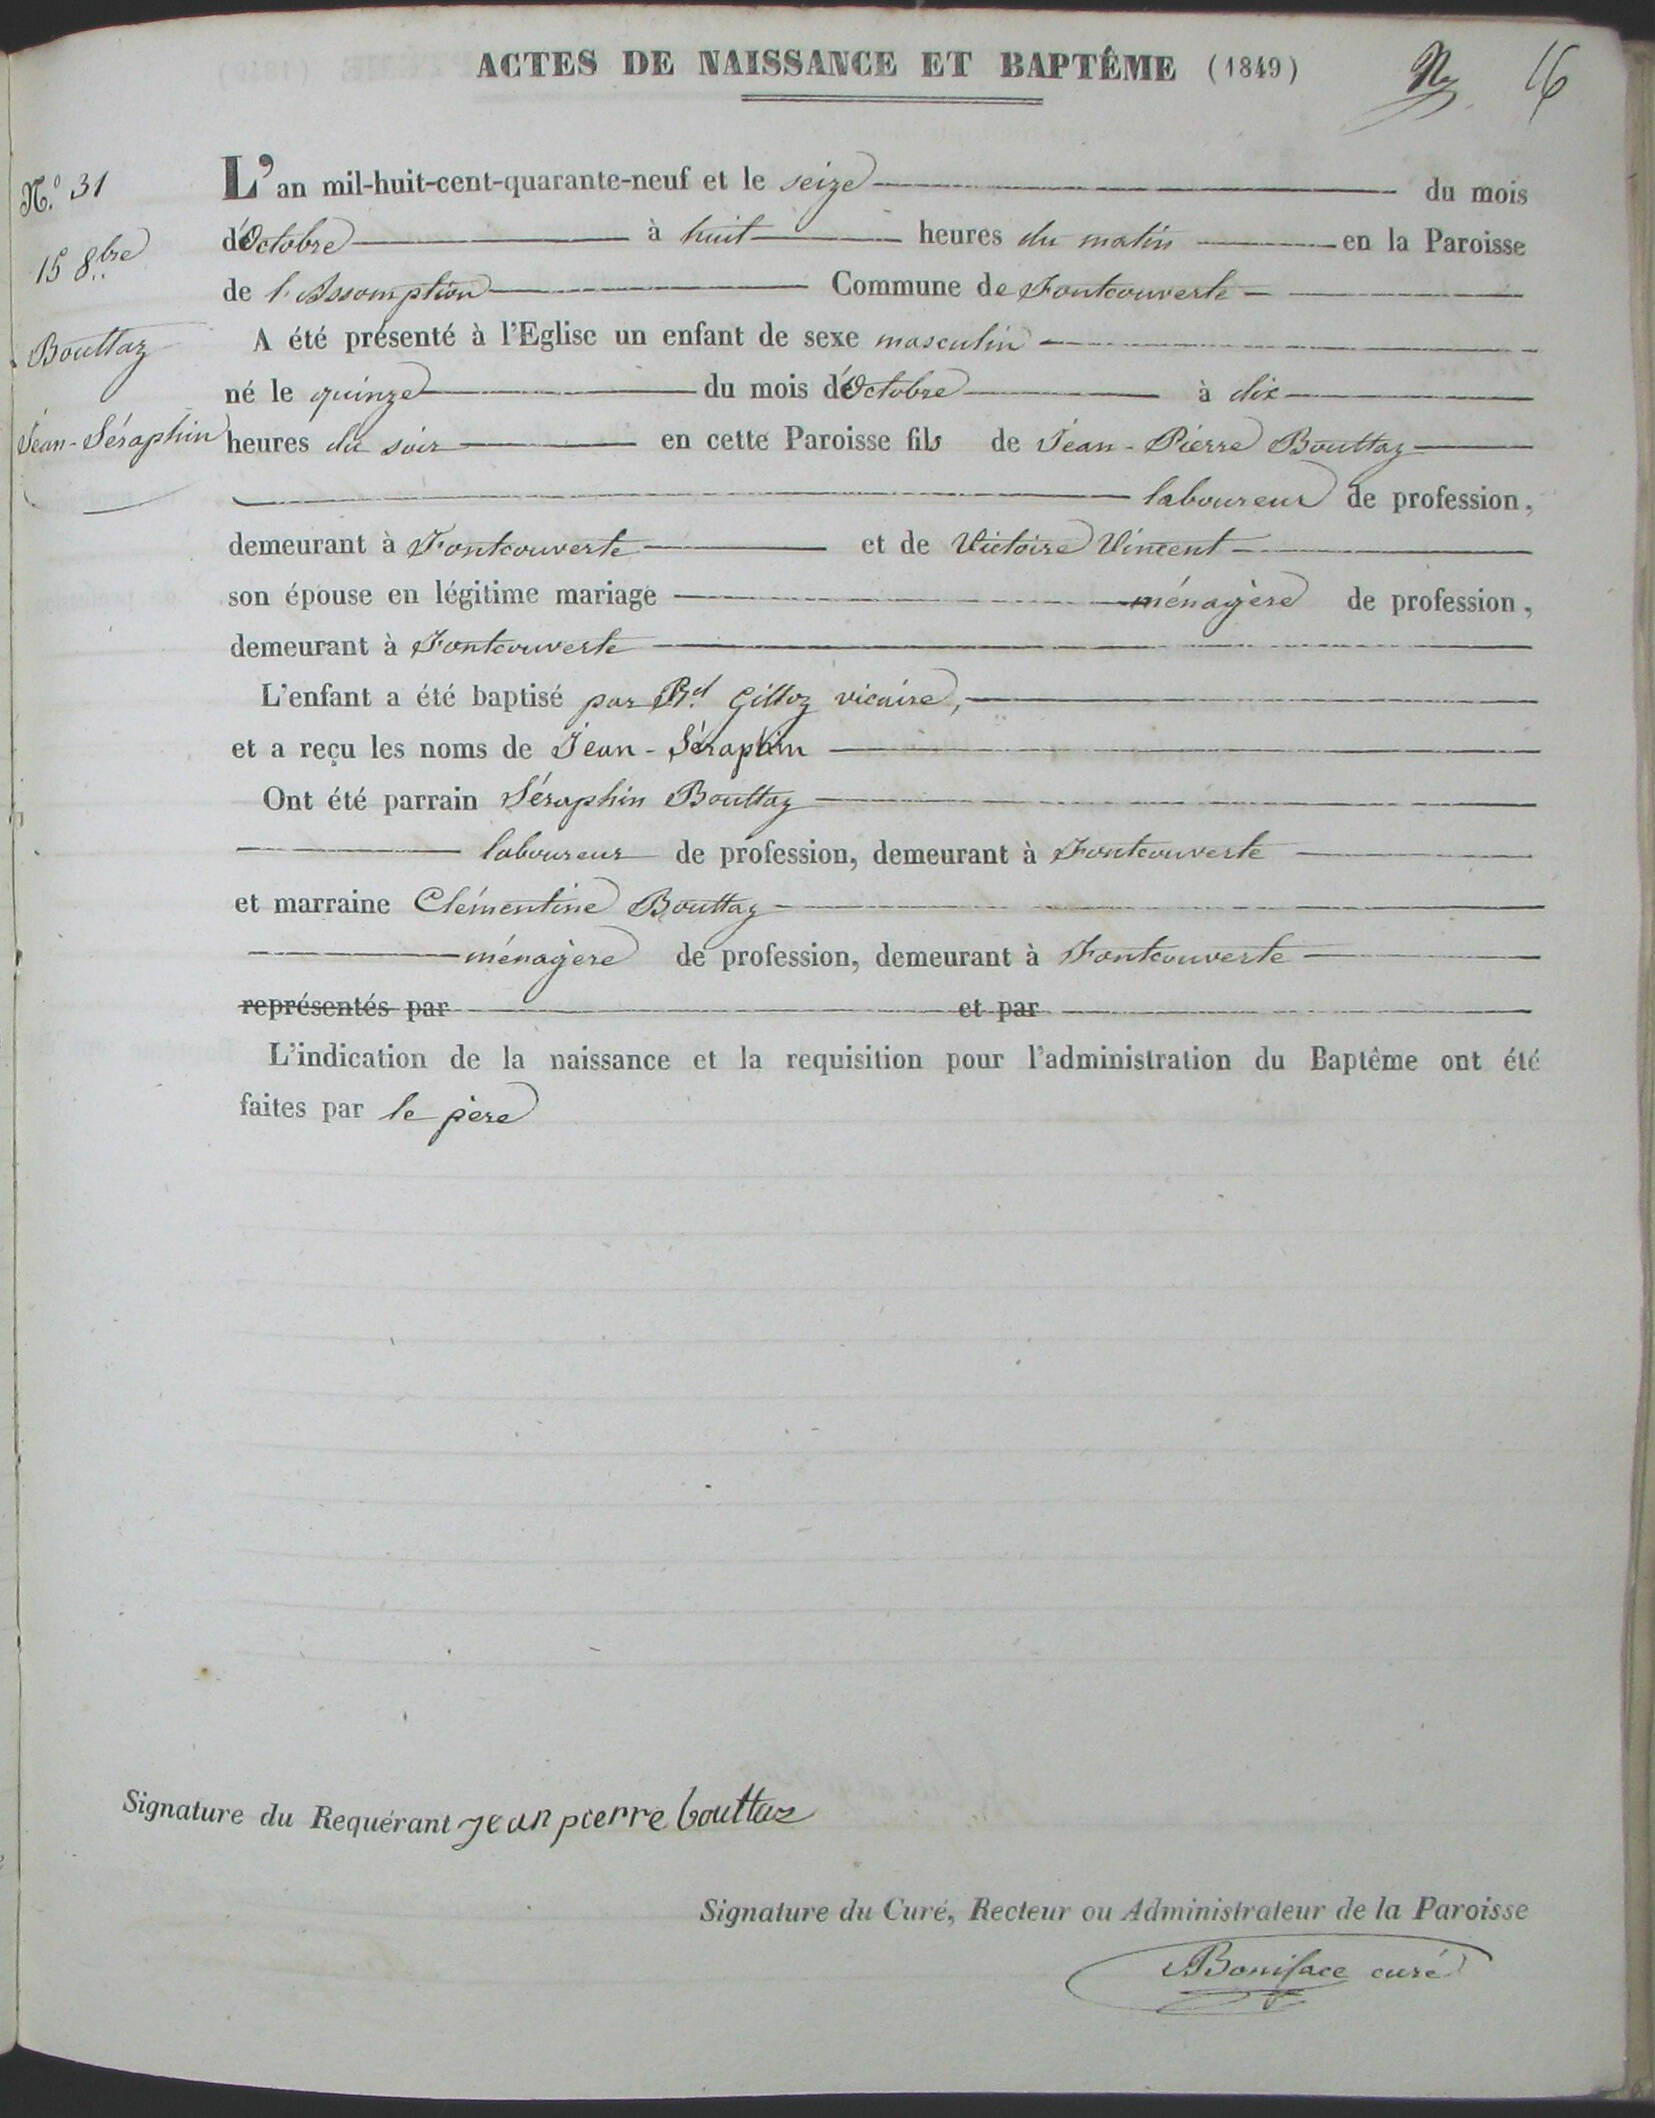 ACTES DE NAISSANCE ET BAPTÊME (1849)
16
N.º 31
15 8.bre
Bouttaz
Jean-Séraphin
L'an mil-huit-cent-quarante-neuf et le seize du mois
d'Octobre à huit heures du matin en la Paroisse
de l'Assomption Commune de Fontcouverte
A été présenté à l'Eglise un enfant de sexe masculin
né le quinze du mois d'Octobre à dix
heures du soir en cette Paroisse fils de Jean-Pierre Bouttaz
laboureur de profession,
demeurant à Fontcouverte et de Victoire Vincent
son épouse en légitime mariage ménagère de profession,
demeurant à Fontcouverte
L'enfant a été baptisé par Rd. Gilloz vicaire,
et a reçu les noms de Jean-Séraphin
Ont été parrain Séraphin Bouttaz
laboureur de profession, demeurant à Fontcouverte
et marraine Clémentine Bouttaz
ménagère de profession, demeurant à Fontcouverte
représentés par et par
L'indication de la naissance et la requisition pour l'administration du Baptême ont été
faites par le père
Signature du Requérant jean pierre bouttaz
Signature du Curé, Recteur ou Administrateur de la Paroisse
Boniface curé